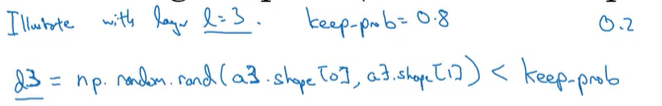 Illustrate with layer l=3. keep-prob=0.8 0.2
d3 = np.random.rand(a3.shape[0], a3.shape[1]) < keep-prob